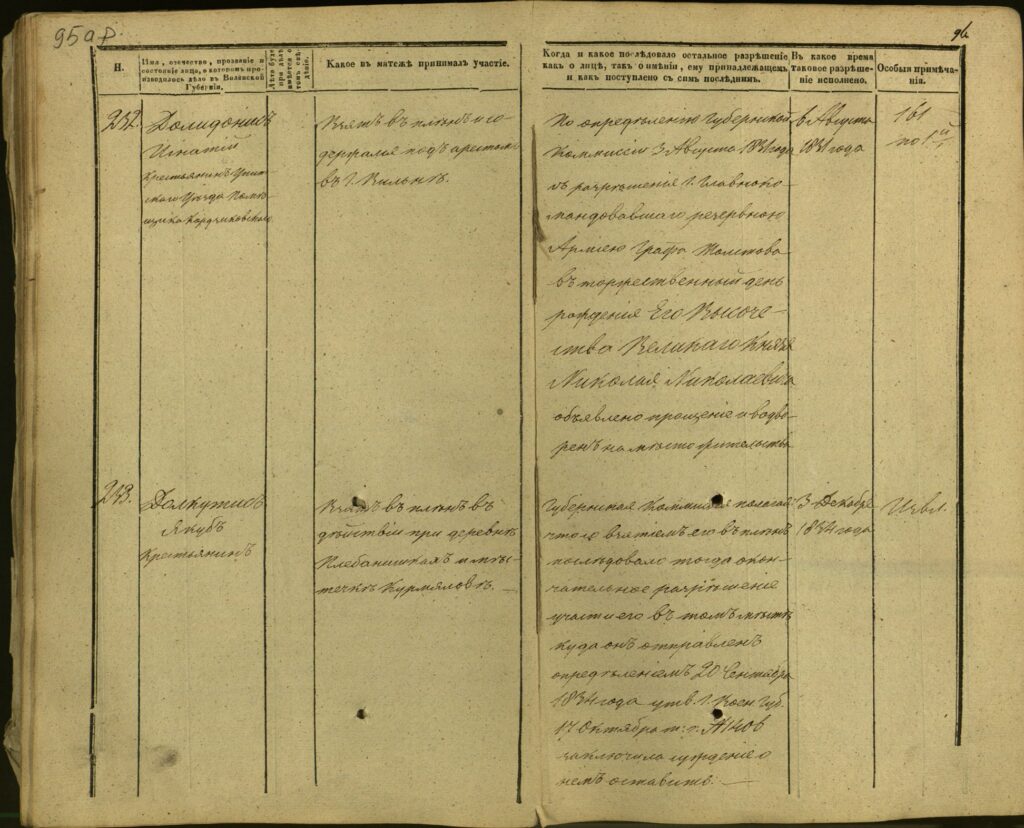 95 об.
96
Н.
Имя, отечество, прозваніе и
состояніе лица, о которомъ про-
изводилось дѣло въ Виленской
Губерніи.
Какое въ мятежѣ принималъ участіе.
Когда и какое послѣдовало остальное разрѣшеніе
какъ о лицѣ, такъ о имѣніи, ему принадлежащемъ
и какъ поступлено съ симъ послѣднимъ.
Въ какое время
таковое разрѣше-
ніе исполнено.
Особыя примѣча-
нія.
242.
Долидонисъ
Игнатій
Крестьянинъ
скаго Уѣзда Помѣ-
щика
Взятъ въ плѣнъ и со-
держался подъ арестомъ
въ г. Вильнѣ.
По опредѣленію Губернской
Коммисіи 3 Августа 1831 года
съ разрѣшенія г. Главноко-
мандовавшаго резервною
Арміею Графа Толстова
въ торжественный день
рожденія Его Высоче-
ства Великаго Князя
Николая Николаевича
объявлено прощеніе и водво-
ренъ на мѣсто жительства
въ Августѣ
1831 года
161
по 1й
243.
Долкутисъ
Якубъ
Крестьянинъ
Взятъ въ плѣнъ въ
дѣйствіи при деревнѣ
Клебанишкахъ и мѣс-
течкѣ Курмяловѣ.
Губернская Коммисія полагая
что о взятіемъ его въ плѣнъ
послѣдовало тогда окон-
чательное разрѣшеніе
участи его въ томъ мѣстѣ
куда онъ отправленъ
опредѣленіемъ 20 Сентября
1834 года утв. г. Воен. Губ.
17 Октября т. г.
заключила сужденіе о
немъ оставить.
3 Декабря
1834 года